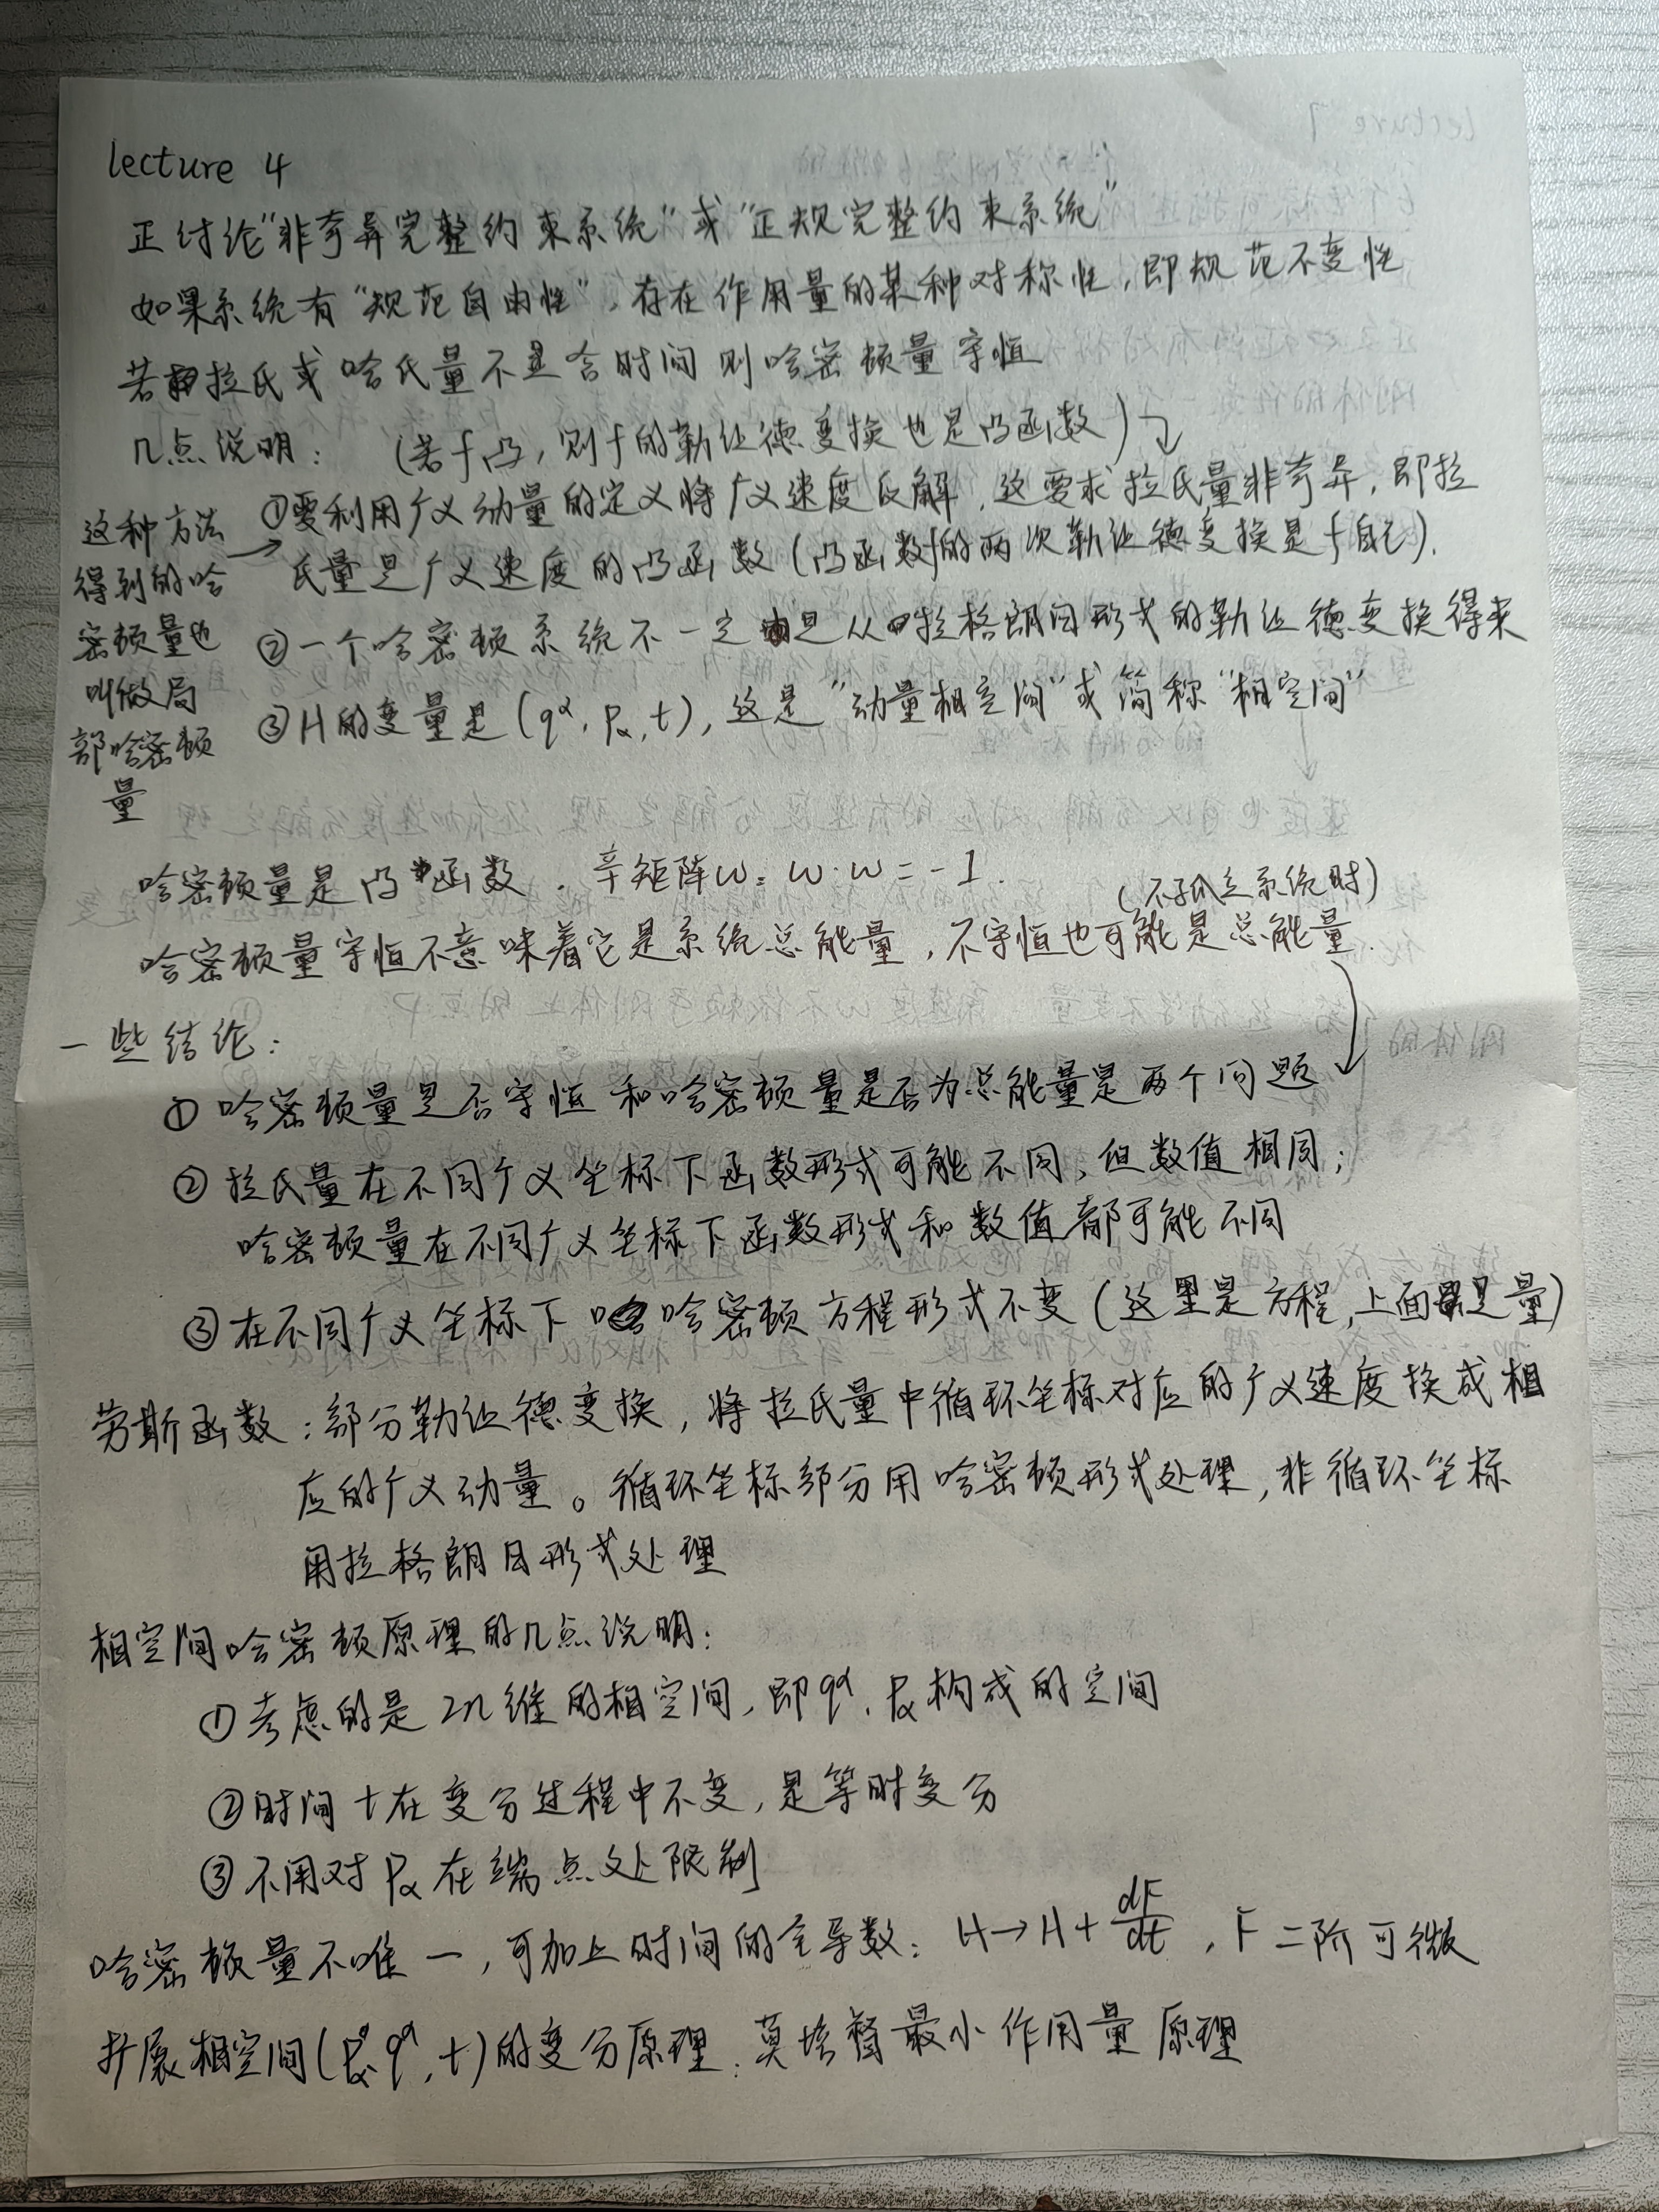 lecture 4
正讨论"非奇异完整约束系统"或"正规完整约束系统"
如果系统有"规范自由性",存在作用量的某种对称性,即规范不变性
若拉氏或哈氏量不显含时间则哈密顿量守恒
几点说明: (若f凸,则f的勒让德变换也是凸函数)
①要利用广义动量的定义将广义速度反解,这要求拉氏量非奇异,即拉
氏量是广义速度的凸函数(凸函数f的两次勒让德变换是f自己).
②一个哈密顿系统不一定是从拉格朗日形式的勒让德变换得来
③H的变量是(qᵅ, pα, t),这是"动量相空间"或简称"相空间"
这种方法
得到的哈
密顿量也
叫做局
部哈密顿
量
哈密顿量是凸函数. 辛矩阵ω: ω·ω=-1.
(不孤立系统时)
哈密顿量守恒不意味着它是系统总能量,不守恒也可能是总能量.
一些结论:
① 哈密顿量是否守恒和哈密顿量是否为总能量是两个问题
② 拉氏量在不同广义坐标下函数形式可能不同,但数值相同;
哈密顿量在不同广义坐标下函数形式和数值都可能不同
③ 在不同广义坐标下哈密顿方程形式不变(这里是方程,上面是量)
劳斯函数:部分勒让德变换,将拉氏量中循环坐标对应的广义速度换成相
应的广义动量。循环坐标部分用哈密顿形式处理,非循环坐标
用拉格朗日形式处理
相空间哈密顿原理的几点说明:
①考虑的是2n维的相空间,即qᵅ, pα构成的空间
②时间t在变分过程中不变,是等时变分
③不用对pα在端点处限制
哈密顿量不唯一,可加上时间的全导数: H→H+dF/dt, F二阶可微
扩展相空间(pα, qᵅ, t)的变分原理:莫培督最小作用量原理